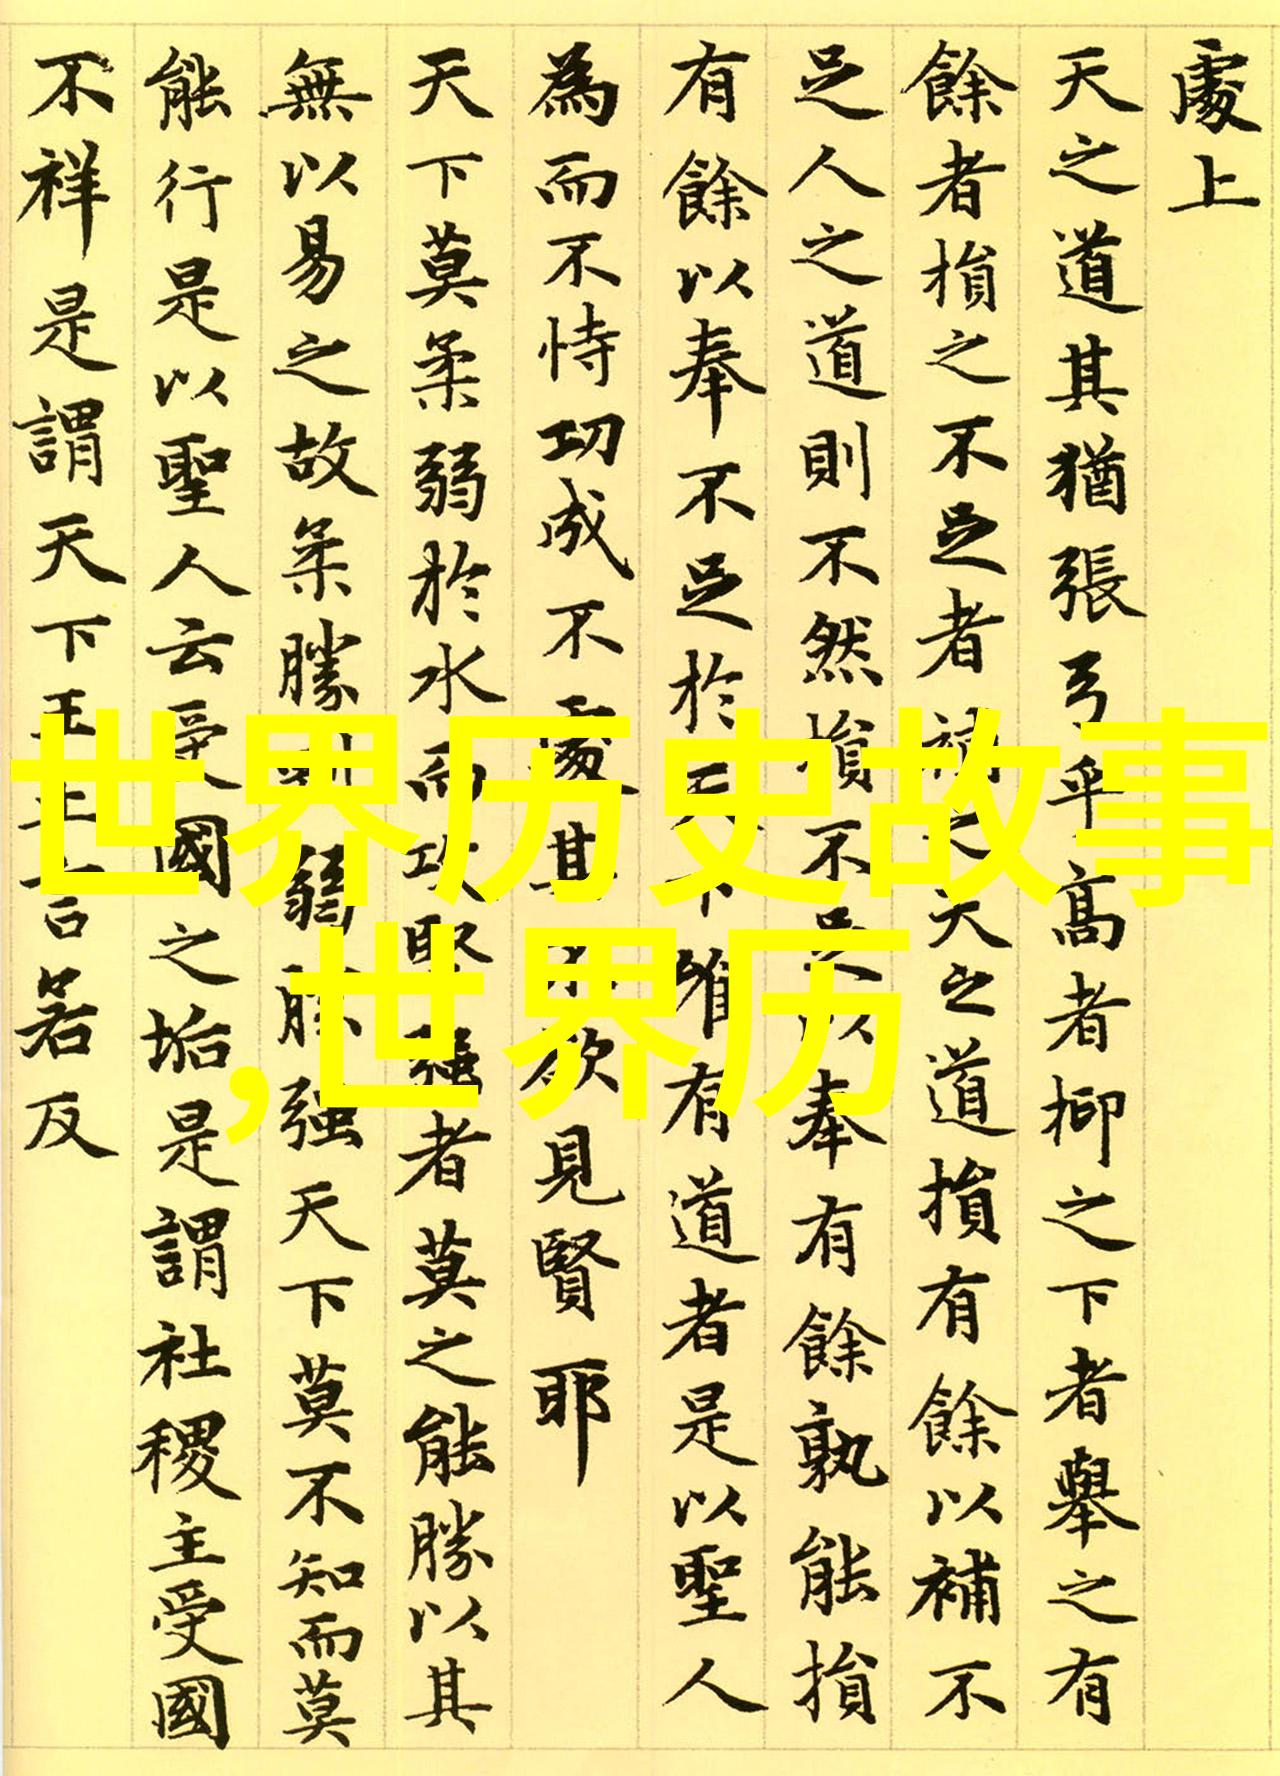 處上
天之道其猶張弓乎高者抑之下者舉之有
餘者損之不足者補之天之道損有餘以補不
足人之道則不然損不足以奉有餘孰能損
有餘以奉不足於天下唯有道者是以聖人
為而不恃功成不處其不欲見賢耶
天下莫柔弱於水而攻堅強者莫之能勝以其
無以易之故柔勝剛弱勝強天下莫不知而莫
能行是以聖人云受國之垢是謂社稷主受國
不祥是謂天下王正言若反
世界历史故事
,世界历